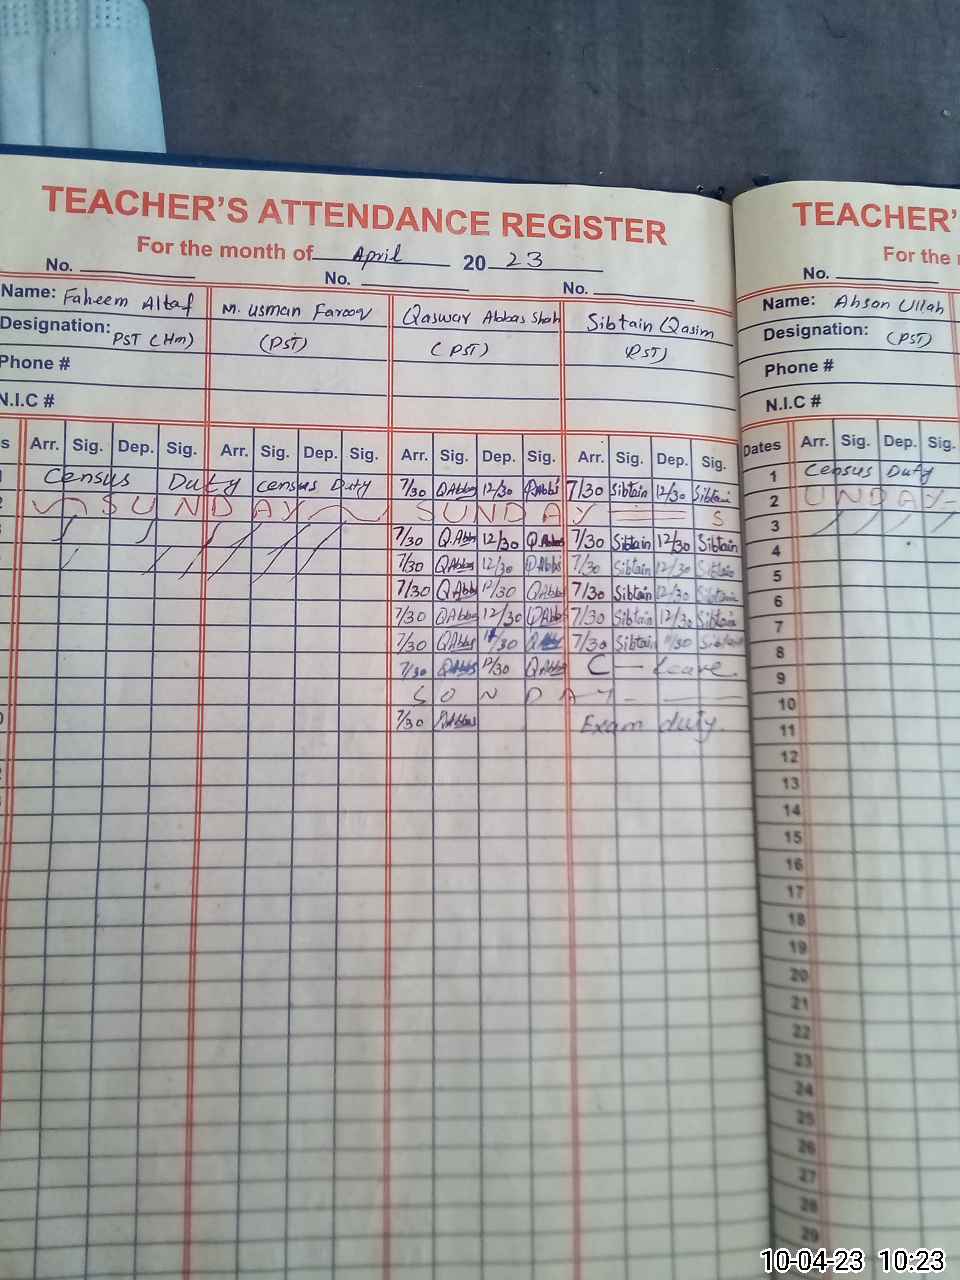 TEACHER'S ATTENDANCE REGISTER
For the month of April 20 23
No. No. No.
Name: Faheem Altaf M. Usman Farooq Qaswar Abbas Shah Sibtain Qasim
Designation: PST (Hm) (PST) (PST) (PST)
Phone #
N.I.C #
s Arr. Sig. Dep. Sig. Arr. Sig. Dep. Sig. Arr. Sig. Dep. Sig. Arr. Sig. Dep. Sig.
Census Duty Census Duty 7/30 QAbbs 12/30 QAbbs 7/30 Sibtain 12/30 Sibtain
SUNDAY SUNDAY S
7/30 Q.Abbs 12/30 Q.Abbs 7/30 Sibtain 12/30 Sibtain
7/30 QAbbs 12/30 QAbbs 7/30 Sibtain 12/30 Sibtain
7/30 QAbbs 12/30 QAbbs 7/30 Sibtain 12/30 Sibtain
7/30 QAbbs 12/30 QAbbs 7/30 Sibtain 12/30 Sibtain
7/30 QAbbs /30 QAbbs 7/30 Sibtain 11/30 Sibtain
7/30 QAbbs 12/30 QAbbs C — Leave
SUNDAY
7/30 QAbbs Exam duty.
TEACHER'
For the
No.
Name: Ahsan Ullah
Designation: (PST)
Phone #
N.I.C #
Dates Arr. Sig. Dep. Sig.
1 Census Duty
2 UNDAY
3
4
5
6
7
8
9
10
11
12
13
14
15
16
17
18
19
20
21
22
23
24
25
26
27
28
29
10-04-23 10:23